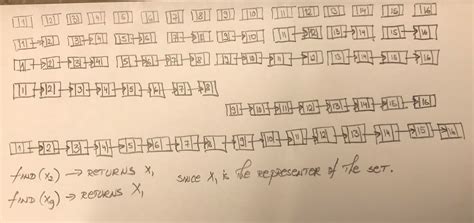 1 2 3 4 5 6 7 8 9 10 11 12 13 14 15 16
1→2 3→4 5→6 7→8 9→10 11→12 13→14 15→16
1→2→3→4 5→6→7→8 9→10→11→12 13→14→15→16
1→2→3→4→5→6→7→8
9→10→11→12→13→14→15→16
1→2→3→4→5→6→7→8→9→10→11→12→13→14→15→16
find(x₂) → returns x₁ since x₁ is the representer of the set.
find(x₉) → returns x₁